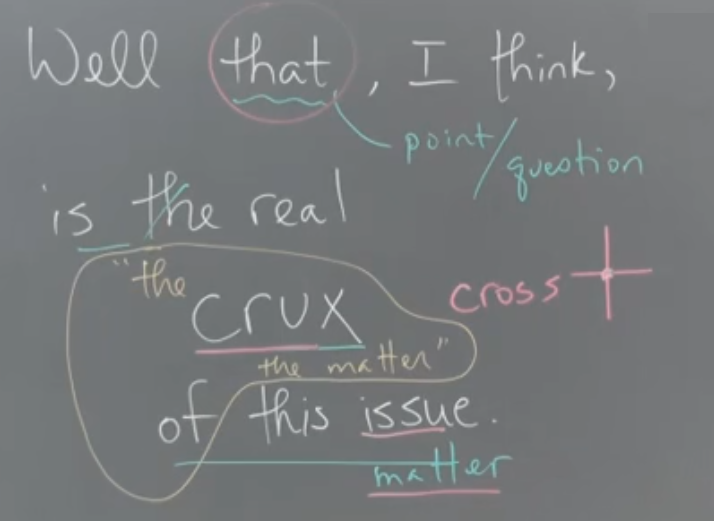 Well that, I think,
point/
question
is the real
"the
crux
cross
the matter"
of this issue.
matter